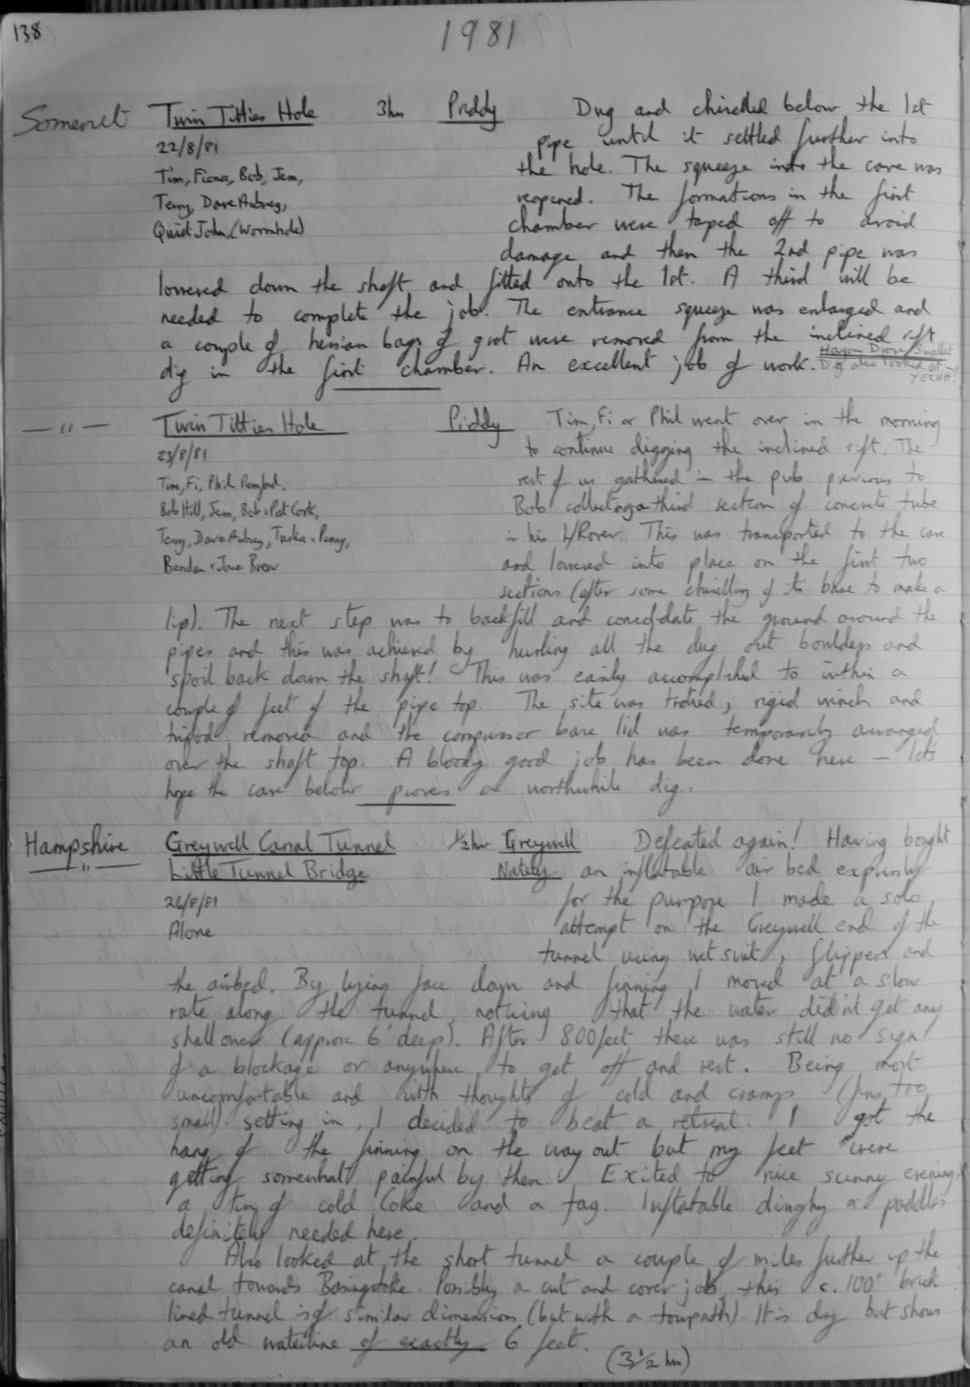 138
1981
Somerset Twin Titties Hole 3hrs Priddy Dug and chiselled below the 1st
22/8/81 pipe until it settled further into
the hole. The squeeze into the cave was
Tim, Fiona, Bob, Jem, reopened. The formations in the first
Terry, Dave Aubrey, chamber were taped off to avoid
Quiet John (Wormhole) damage and then the 2nd pipe was
lowered down the shaft and fitted onto the 1st. A third will be
needed to complete the job. The entrance squeeze was enlarged and
a couple of hessian bags of grot were removed from the inclined rift
dig in the first chamber. An excellent job of work.
Dig also looked at
—"— Twin Titties Hole Priddy Tim, Fi & Phil went over in the morning
23/8/81 to continue digging the inclined rift. The
Tim, Fi, Phil rest of us gathered in the pub previous to
Bob Hill, Jem, Bob & Pat Cork, Bob collecting a third section of concrete tube
Terry, Dave Aubrey, in his L/Rover. This was transported to the cave
and lowered into place on the first two
sections (after some chiselling of its base to make a
lip). The next step was to backfill and consolidate the ground around the
pipes and this was achieved by hurling all the dug out boulders and
spoil back down the shaft! This was easily accomplished to within a
couple of feet of the pipe top. The site was tidied, rigid winch and
tripod removed and the compressor base lid was temporarily arranged
over the shaft top. A bloody good job has been done here – lets
hope the cave below proves a worthwhile dig.
Hampshire Greywell Canal Tunnel 1½hr Greywell Defeated again! Having bought
—"— Little Tunnel Bridge Nately an inflatable air bed expressly
26/8/81 for the purpose I made a solo
Alone attempt on the Greywell end of the
tunnel using wet suit, flippers and
the airbed. By lying face down and finning I moved at a slow
rate along the tunnel, noticing that the water didn't get any
shallower (approx 6' deep). After 800 feet there was still no sign
of a blockage or anywhere to get off and rest. Being most
uncomfortable and with thoughts of cold and cramps (fins too
small) setting in, I decided to beat a retreat. I got the
hang of the finning on the way out but my feet were
getting somewhat painful by then. Exited to nice sunny evening
a tin of cold Coke and a fag. Inflatable dinghy & paddles
definitely needed here.
Also looked at the short tunnel a couple of miles further up the
canal towards Basingstoke. Possibly a cut and cover job, this c. 100' brick
lined tunnel is of similar dimensions (but with a towpath). It is dry but shows
an old waterline of exactly 6 feet.
(3½ hrs)